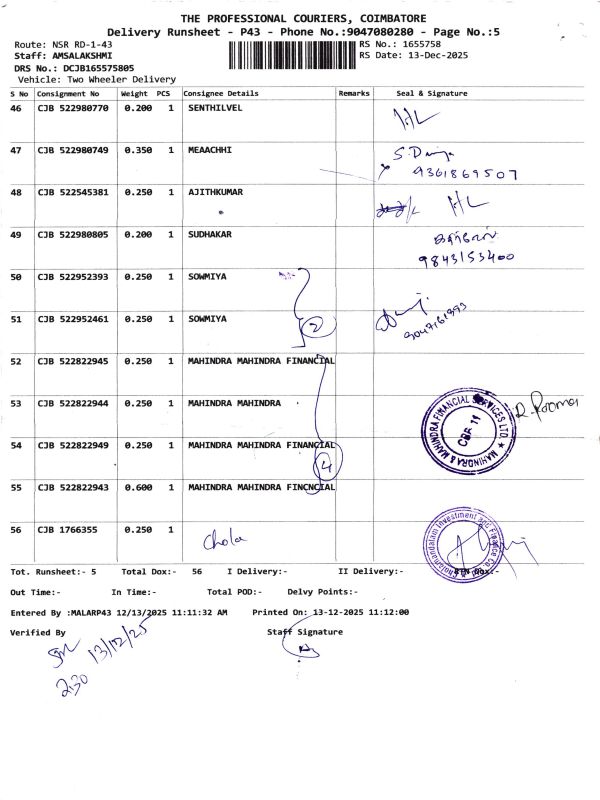 THE PROFESSIONAL COURIERS, COIMBATORE
Delivery Runsheet - P43 - Phone No.:9047080280 - Page No.:5
Route: NSR RD-1-43 RS No.: 1655758
Staff: AMSALAKSHMI RS Date: 13-Dec-2025
DRS No.: DCJB165575805
Vehicle: Two Wheeler Delivery
S No Consignment No Weight PCS Consignee Details Remarks Seal & Signature
46 CJB 522980770 0.200 1 SENTHILVEL
47 CJB 522980749 0.350 1 MEAACHHI
9361869507
48 CJB 522545381 0.250 1 AJITHKUMAR
49 CJB 522980805 0.200 1 SUDHAKAR
9843153400
50 CJB 522952393 0.250 1 SOWMIYA
51 CJB 522952461 0.250 1 SOWMIYA 2
52 CJB 522822945 0.250 1 MAHINDRA MAHINDRA FINANCIAL
53 CJB 522822944 0.250 1 MAHINDRA MAHINDRA
MAHINDRA & MAHINDRA FINANCIAL SERVICES LTD.
CBE 11
54 CJB 522822949 0.250 1 MAHINDRA MAHINDRA FINANCIAL
4
55 CJB 522822943 0.600 1 MAHINDRA MAHINDRA FINCNCIAL
56 CJB 1766355 0.250 1 Chola
Cholamandalam Investment and Finance Co.
Tot. Runsheet:- 5 Total Dox:- 56 I Delivery:- II Delivery:-
Out Time:- In Time:- Total POD:- Delvy Points:-
Entered By :MALARP43 12/13/2025 11:11:32 AM Printed On: 13-12-2025 11:12:00
Verified By Staff Signature
13/12/25
2:30